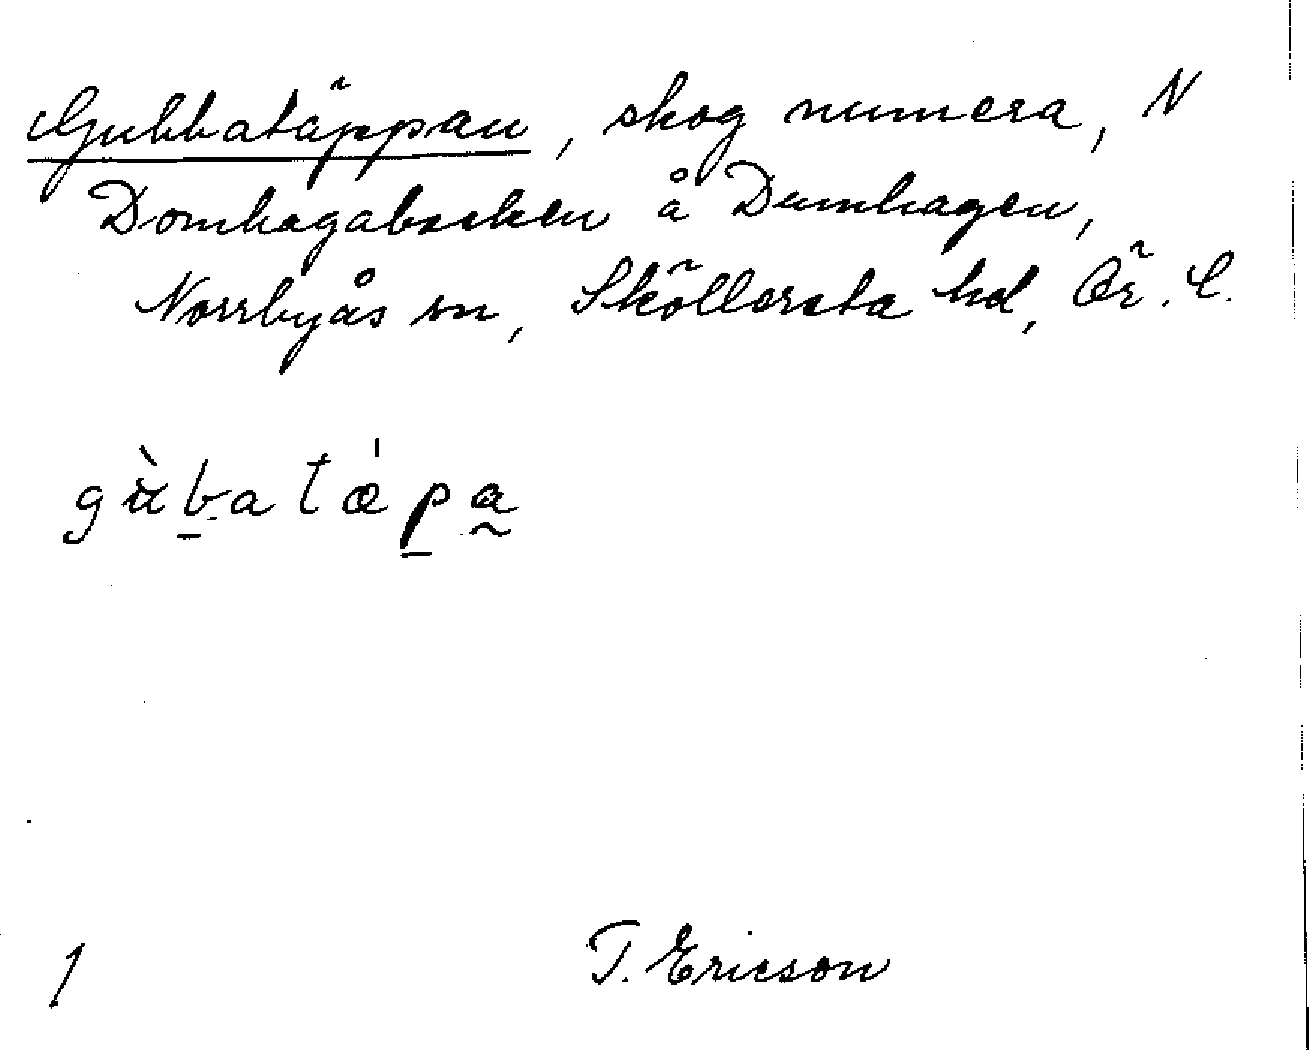 Gubbatäppan, skog numera, N
Domhagabacken å Dumhagen,
Norrbyås sn, Sköllersta hd, Ör. l.
gùbatǽpa
1
T. Ericson